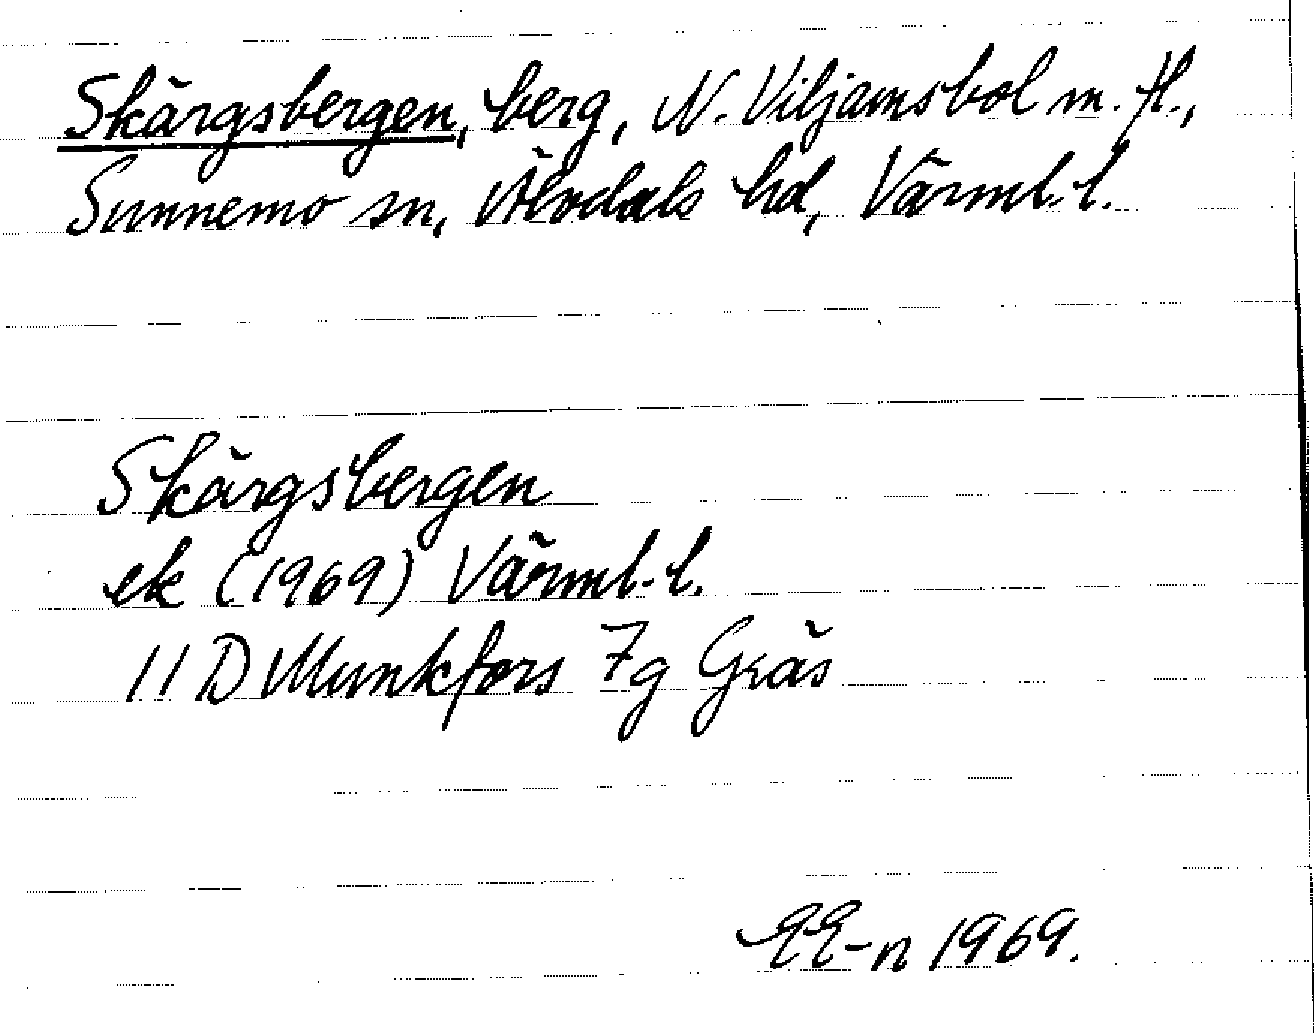 Skärgsbergen, berg, N. Viljamsbol m. fl.,
Sunnemo sn, Älvdals hd, Värml. l.
Skärgsbergen
ek (1969) Värml. l.
11 D Munkfors 7g Gräs
EE-n 1969.